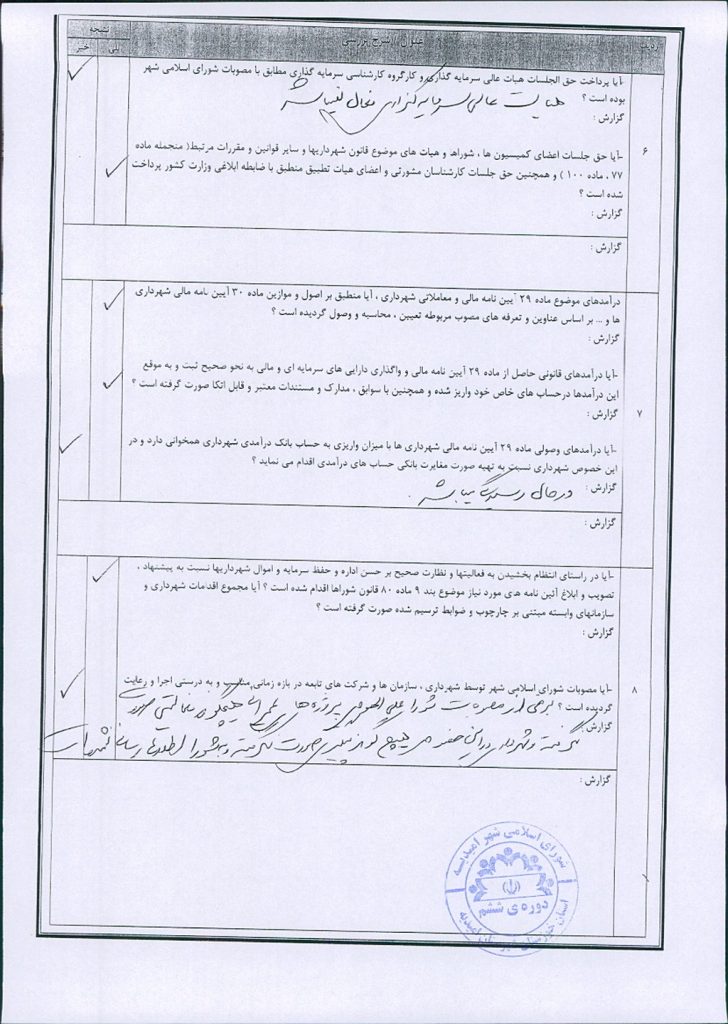 ردیف عنوان / شرح بررسی نتیجه
بلی خیر
-آیا پرداخت حق الجلسات هیات عالی سرمایه گذاری و کارگروه کارشناسی سرمایه گذاری مطابق با مصوبات شورای اسلامی شهر
بوده است ؟
گزارش :
هیات عالی سرمایه گذاری فعال نمیباشد
۶
-آیا حق جلسات اعضای کمیسیون ها ، شوراها و هیات های موضوع قانون شهرداریها و سایر قوانین و مقررات مرتبط( منجمله ماده
۷۷ ، ماده ۱۰۰ ) و همچنین حق جلسات کارشناسان مشورتی و اعضای هیات تطبیق منطبق با ضابطه ابلاغی وزارت کشور پرداخت
شده است ؟
گزارش :
گزارش :
درآمدهای موضوع ماده ۲۹ آیین نامه مالی و معاملاتی شهرداری ، آیا منطبق بر اصول و موازین ماده ۳۰ آیین نامه مالی شهرداری
ها و ... بر اساس عناوین و تعرفه های مصوب مربوطه تعیین ، محاسبه و وصول گردیده است ؟
گزارش :
-آیا درآمدهای قانونی حاصل از ماده ۲۹ آیین نامه مالی و واگذاری دارایی های سرمایه ای و مالی به نحو صحیح ثبت و به موقع
این درآمدها درحساب های خاص خود واریز شده و همچنین با سوابق ، مدارک و مستندات معتبر و قابل اتکا صورت گرفته است ؟
گزارش :
۷
-آیا درآمدهای وصولی ماده ۲۹ آیین نامه مالی شهرداری ها با میزان واریزی به حساب بانک درآمدی شهرداری همخوانی دارد و در
این خصوص شهرداری نسبت به تهیه صورت مغایرت بانکی حساب های درآمدی اقدام می نماید ؟
گزارش : درحال رسیدگی میباشد .
گزارش :
-آیا در راستای انتظام بخشیدن به فعالیتها و نظارت صحیح بر حسن اداره و حفظ سرمایه و اموال شهرداریها نسبت به پیشنهاد ،
تصویب و ابلاغ آئین نامه های مورد نیاز موضوع بند ۹ ماده ۸۰ قانون شوراها اقدام شده است ؟ آیا مجموع اقدامات شهرداری و
سازمانهای وابسته مبتنی بر چارچوب و ضوابط ترسیم شده صورت گرفته است ؟
گزارش :
۸
-آیا مصوبات شورای اسلامی شهر توسط شهرداری ، سازمان ها و شرکت های تابعه در بازه زمانی مناسب و به درستی اجرا و رعایت
گردیده است ؟ برخی از مصوبات شورا علی الخصوص پروژه های عمرانی هیچگونه فعالیتی صورت
گزارش :
نگرفته و شهرداری در این خصوص هیچ گونه پیگیری صورت نگرفته و به شورا
گزارش :
شورای اسلامی شهر امیدیه
دوره ی ششم
استان خوزستان شهرستان امیدیه